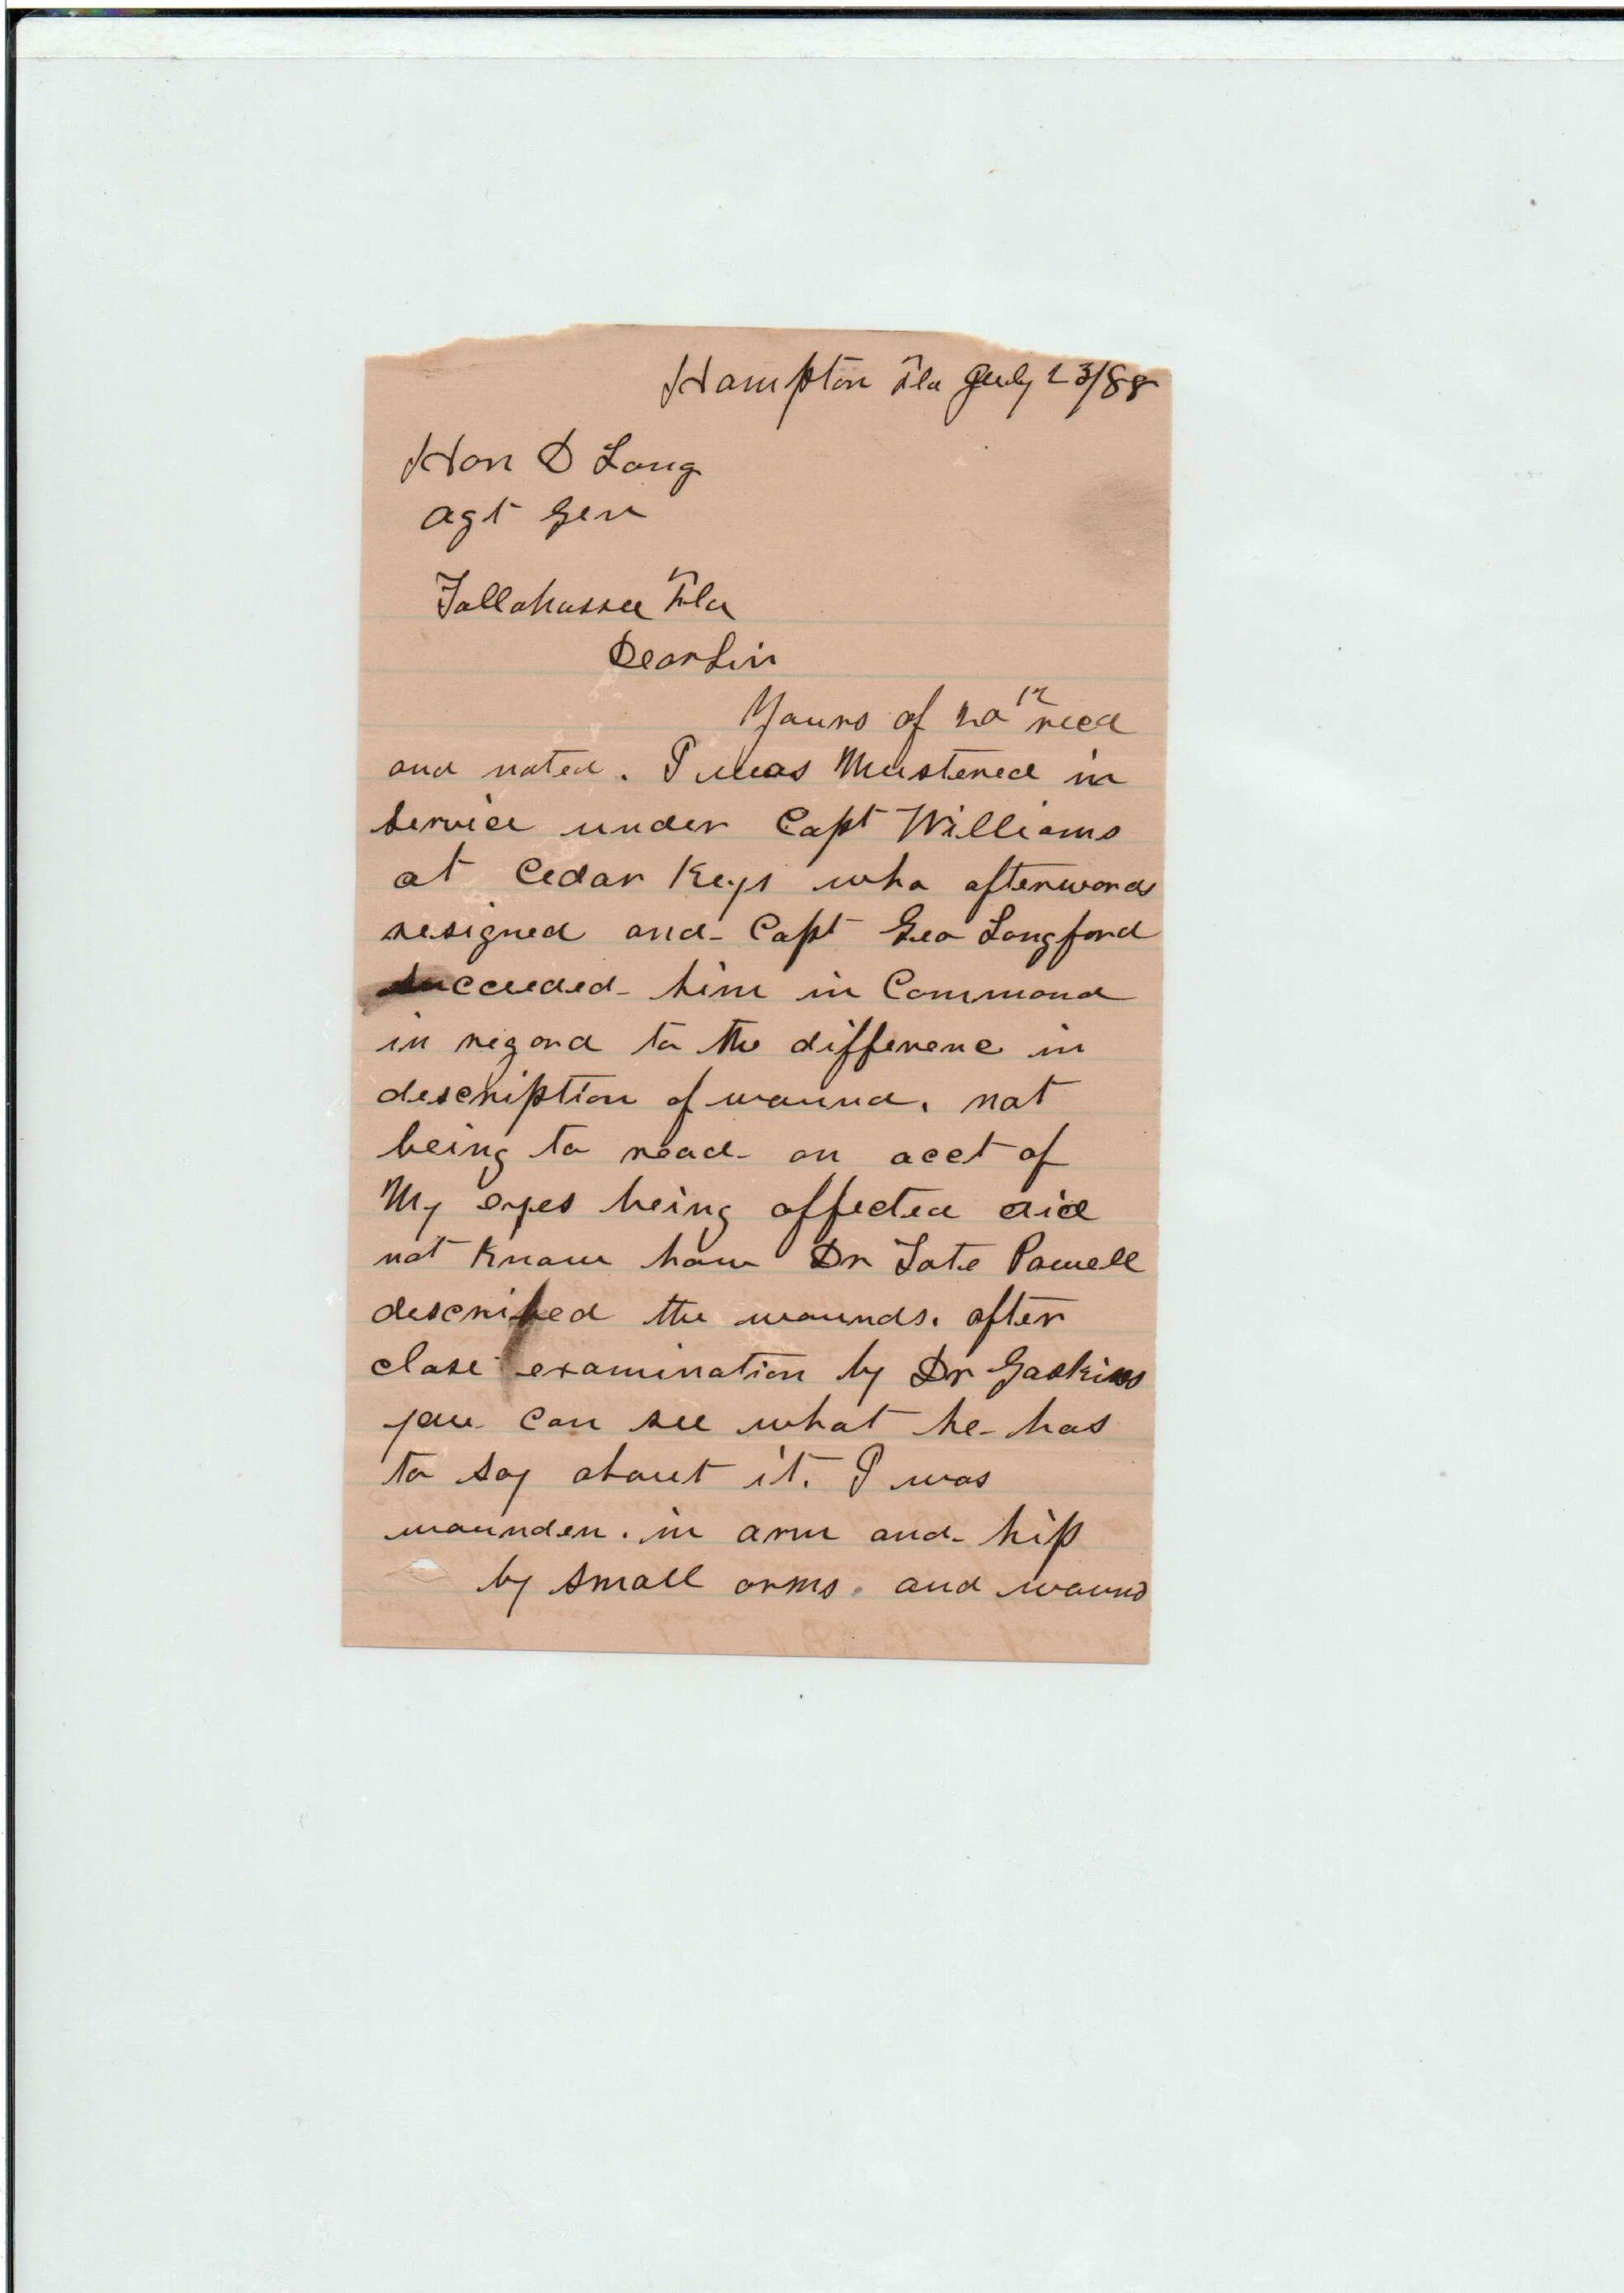 Hampton Fla July 23/88
Hon D Lang
agt Gen
Tallahassee Fla
Dear Sir
Yours of 20th recd
and noted. I was Mustered in
service under Capt Williams
at Cedar Keys who afterwords
resigned and Capt Geo Langford
succeeded him in Command
in regard to the differenc in
description of wound. not
being to read on acct of
My eyes being affected did
not know how Dr Tate Powell
described the wounds. after
close examination by Dr Gaskins
you can see what he has
to say about it. I was
wounden. in arm and hip
by small arms. and wound